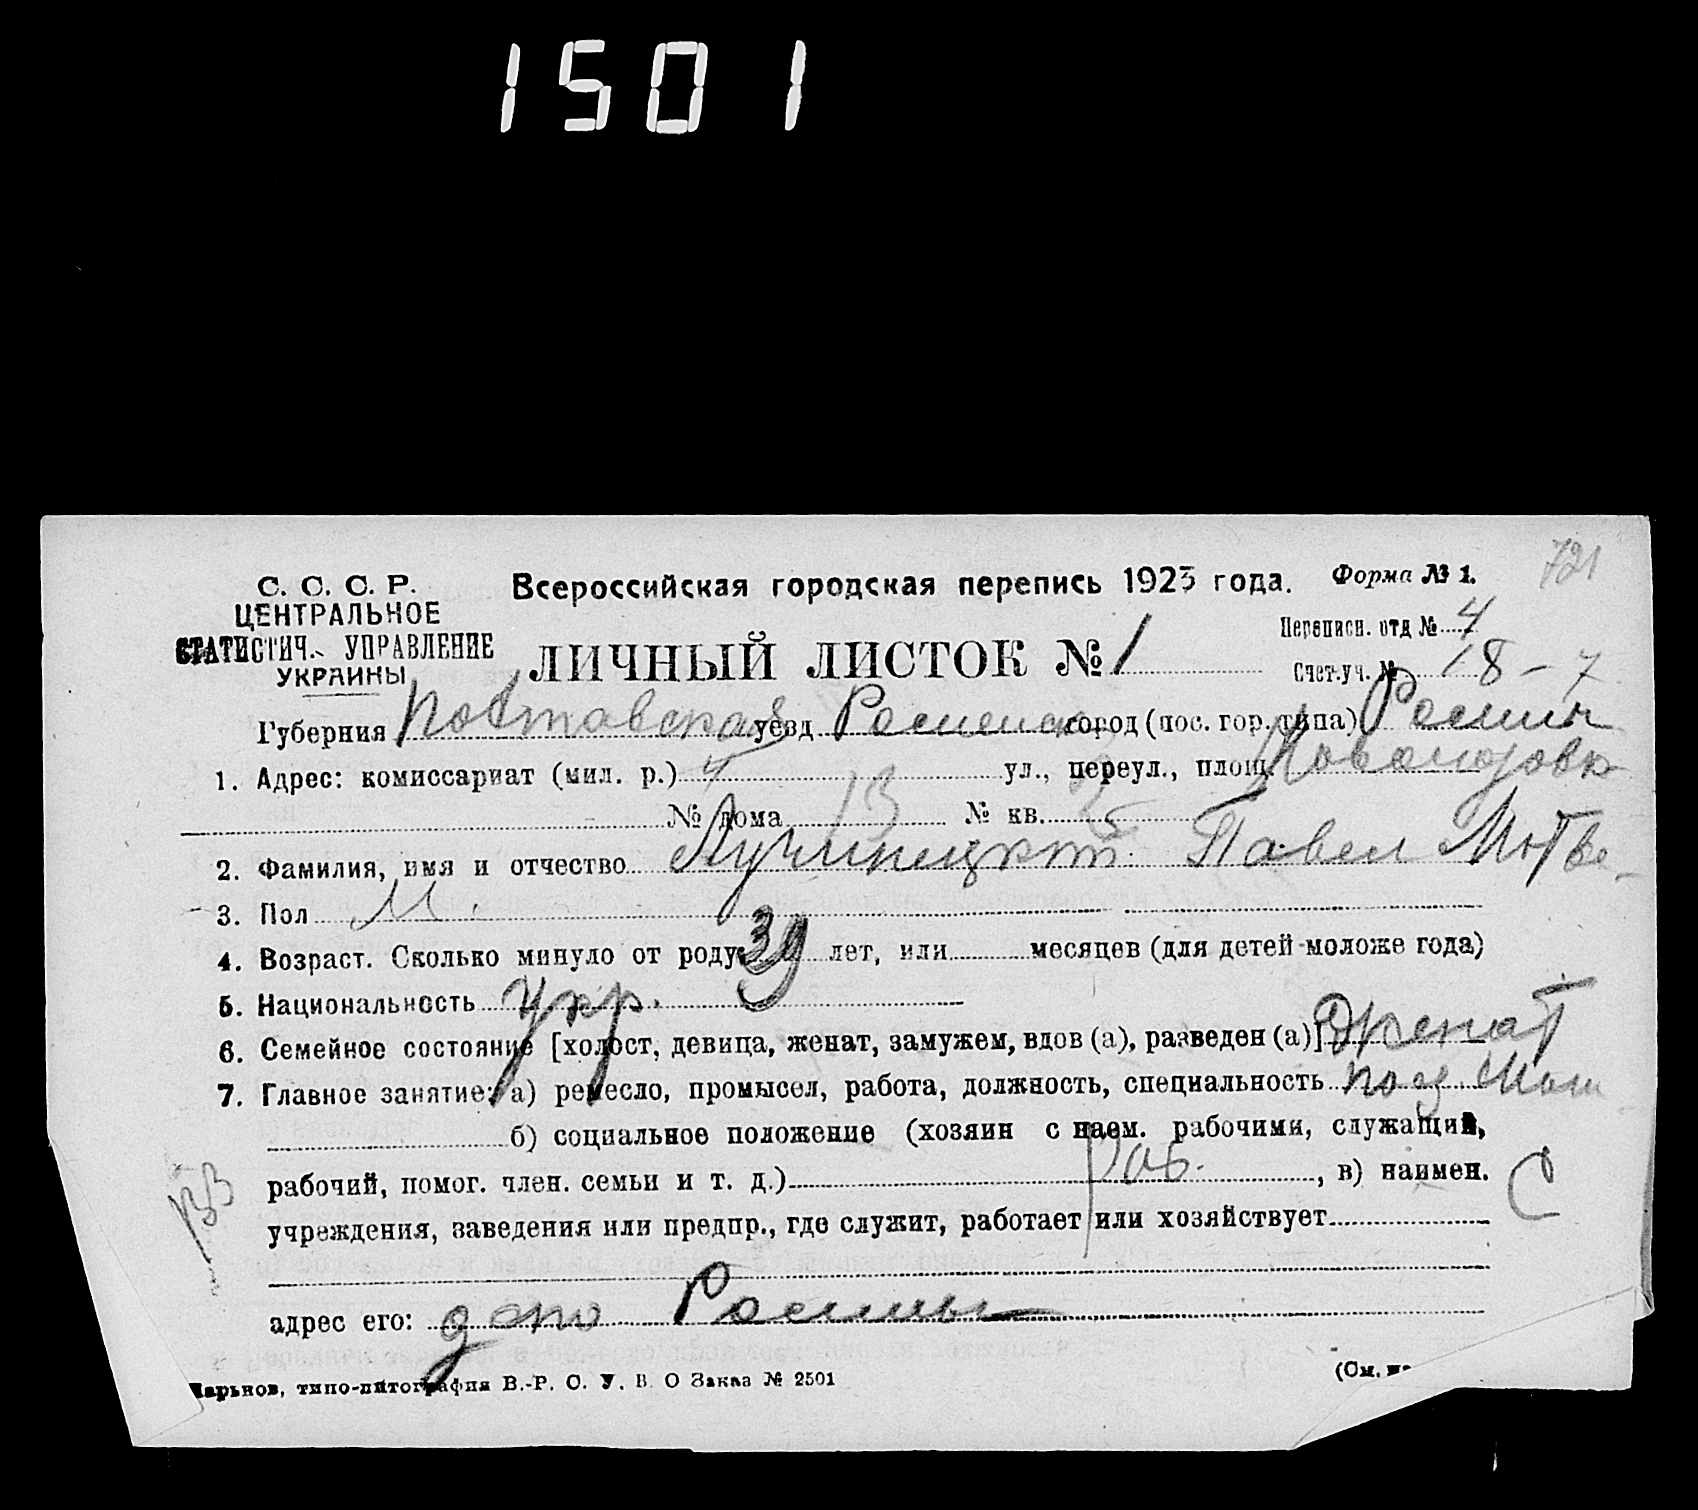 1501
721
С. С. С. Р.
ЦЕНТРАЛЬНОЕ
СТАТИСТИЧ. УПРАВЛЕНИЕ
УКРАИНЫ
Всероссийская городская перепись 1923 года.
Форма № 1.
ЛИЧНЫЙ ЛИСТОК № 1
Переписн. отд № 4
Счет.уч. № 18 - 7
Губерния Полтавская уезд Роменск город (пос. гор. типа) Ромны
1. Адрес: комиссариат (мил. р.) 4 ул., переул., площ.
№ дома 13 № кв.
2. Фамилия, имя и отчество Павел Матве
3. Пол М.
4. Возраст. Сколько минуло от роду 39 лет, или месяцев (для детей моложе года)
5. Национальность Укр.
6. Семейное состояние [холост, девица, женат, замужем, вдов (а), разведен (а)] Женат
7. Главное занятие: а) ремесло, промысел, работа, должность, специальность пом Маш
б) социальное положение (хозяин с наем. рабочими, служащий,
рабочий, помог. член. семьи и т. д.) Раб. , в) наимен.
учреждения, заведения или предпр., где служит, работает или хозяйствует
адрес его: депо Ромны
Харьков, типо-литография В.-Р. С. У. В. О Заказ № 2501
(См.